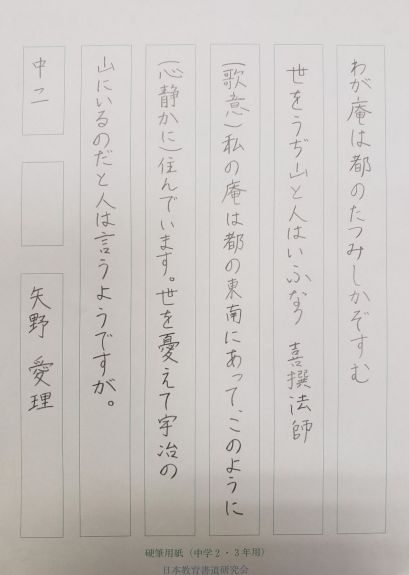 わが庵は都のたつみしかぞすむ
世をうぢ山と人はいふなり 喜撰法師
(歌意)私の庵は都の東南にあって、このように
(心静かに)住んでいます。世を憂えて宇治の
山にいるのだと人は言うようですが。
中二
矢野 愛理
硬筆用紙(中学2・3年用)
日本教育書道研究会